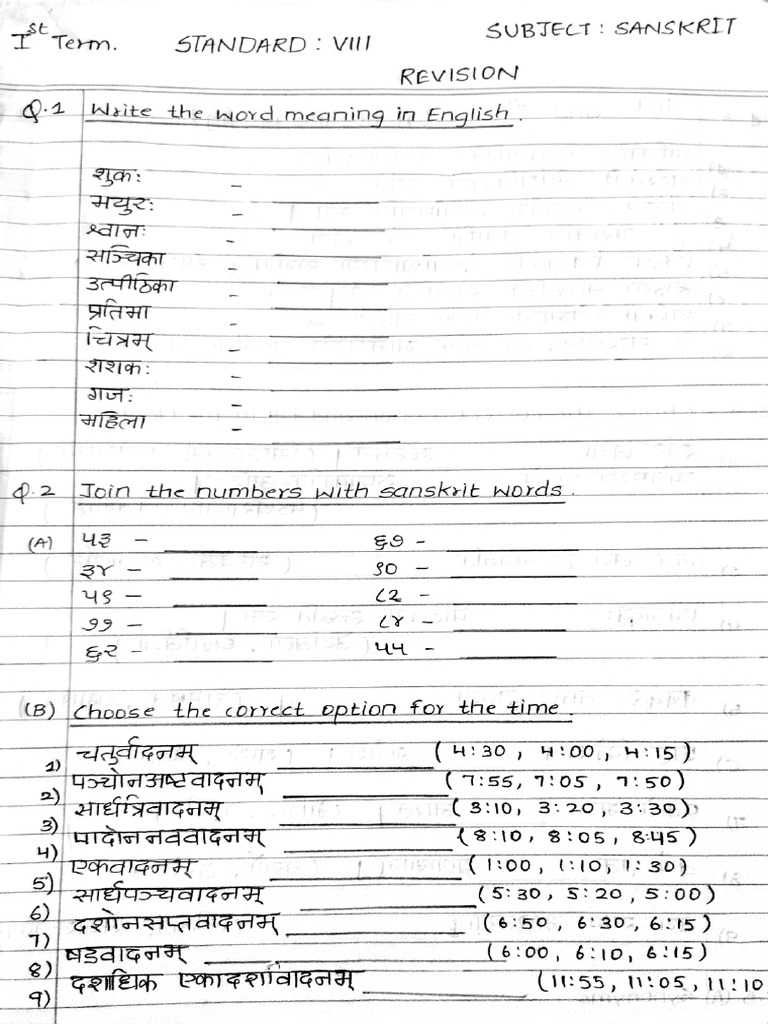 Ist Term. STANDARD : VIII SUBJECT : SANSKRIT
REVISION
Q.1 Write the word meaning in English.
शुकः -
मयुरः - ________
श्वानः - ________
सञ्चिका - ________
उत्पीठिका - ________
प्रतिमा - ________
चित्रम् - ________
शशकः - ________
गजः - ________
महिला - ________
Q.2 Join the numbers with sanskrit words.
(A) ५३ - ________ ६७ - ________
३४ - ________ ९० - ________
५९ - ________ ८२ - ________
७७ - ________ ८४ - ________
६२ - ________ ५५ - ________
(B) Choose the correct option for the time.
1) चतुर्वादनम् ________ (4:30, 4:00, 4:15)
2) पञ्चोनअष्टवादनम् ________ (7:55, 7:05, 7:50)
3) सार्धत्रिवादनम् ________ (3:10, 3:20, 3:30)
4) पादोननववादनम् ________ (8:10, 8:05, 8:45)
5) एकवादनम् ________ (1:00, 1:10, 1:30)
6) सार्धपञ्चवादनम् ________ (5:30, 5:20, 5:00)
7) दशोनसप्तवादनम् ________ (6:50, 6:30, 6:15)
8) षडवादनम् ________ (6:00, 6:10, 6:15)
9) दशाधिक एकादशवादनम् ________ (11:55, 11:05, 11:10